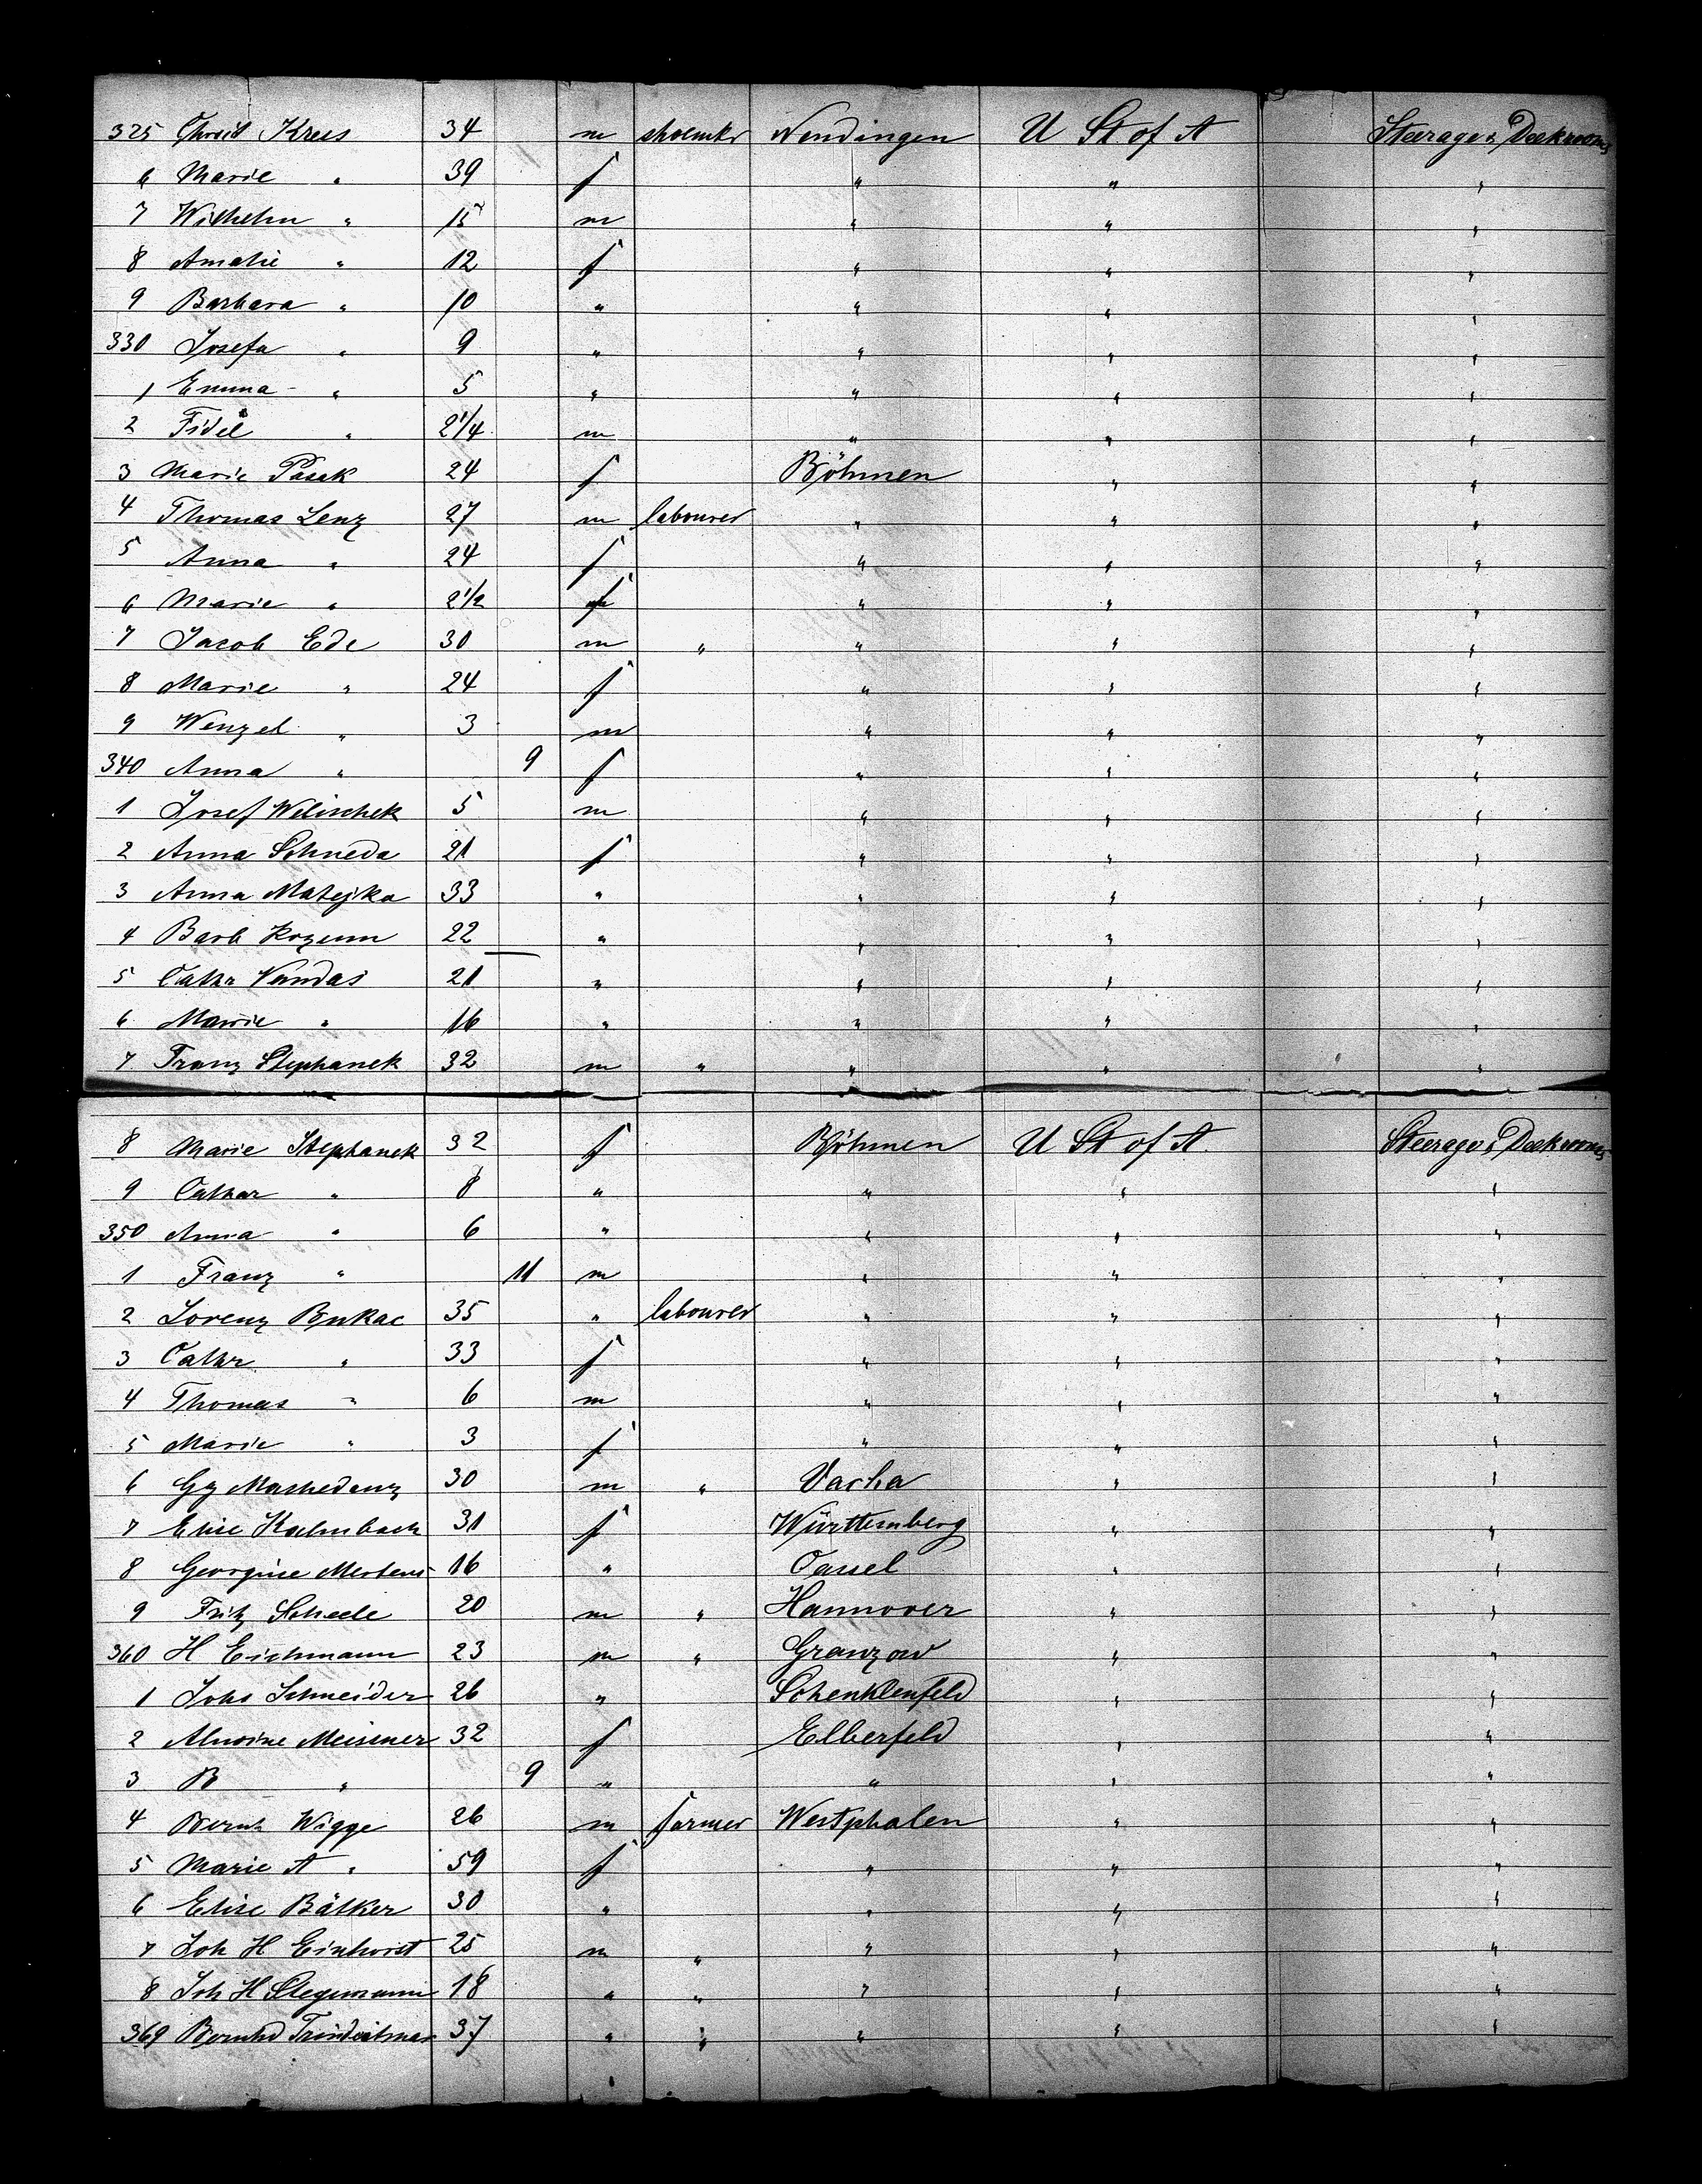 325 Christ Kreis 34 m shoemkr Wendingen U St. of A Steerage & Deckrooms
6 Marie " 39 f " " "
7 Wilhelm " 15 m " " "
8 Amalie " 12 f " " "
9 Barbara " 10 " " " "
330 Josefa " 9 " " " "
1 Emma " 5 " " " "
2 Fidel " 2 1/4 m " " "
3 Marie Pasak 24 f Böhmen " "
4 Thomas Lenz 27 m labourer " " "
5 Anna " 24 f " " "
6 Marie " 2 1/2 f " " "
7 Jacob Ede 30 m " " " "
8 Marie " 24 f " " "
9 Wenzel " 3 m " " "
340 Anna " 9 f " " "
1 Josef Welischek 5 m " " "
2 Anna Schneda 21 f " " "
3 Anna Matejka 33 " " " "
4 Barb Rozum 22 " " " "
5 Cathr Vandas 21 " " " "
6 Marie " 16 " " " "
7 Franz Stephanek 32 m " " " "
8 Marie Stephanek 32 f Böhmen U St of A. Steerage & Deckrooms
9 Cathar " 8 " " " "
350 Anna " 6 " " " "
1 Franz " 11 m " " "
2 Lorenz Bukac 35 " labourer " " "
3 Cathr " 33 f " " "
4 Thomas " 6 m " " "
5 Marie " 3 f " " "
6 Gg 30 m " Vacha " "
7 Elise Kalmbach 31 f Württemberg " "
8 Georgine Mertens 16 " Cassel " "
9 Fritz Scheele 20 m " Hannover " "
360 H Eichmann 23 m " Granzow " "
1 Johs Schneider 26 " Schenklenfeld " "
2 Alwine Meisener 32 f Elberfeld " "
3 B " 9 " " " "
4 Bernh Wigge 26 m farmer Westphalen " "
5 Marie A " 59 f " " "
6 Elise Bätker 30 " " " "
7 Joh H Einhorst 25 m " " " "
8 Joh H Stegemann 18 " " " " "
369 Bernhd 37 " " " " "